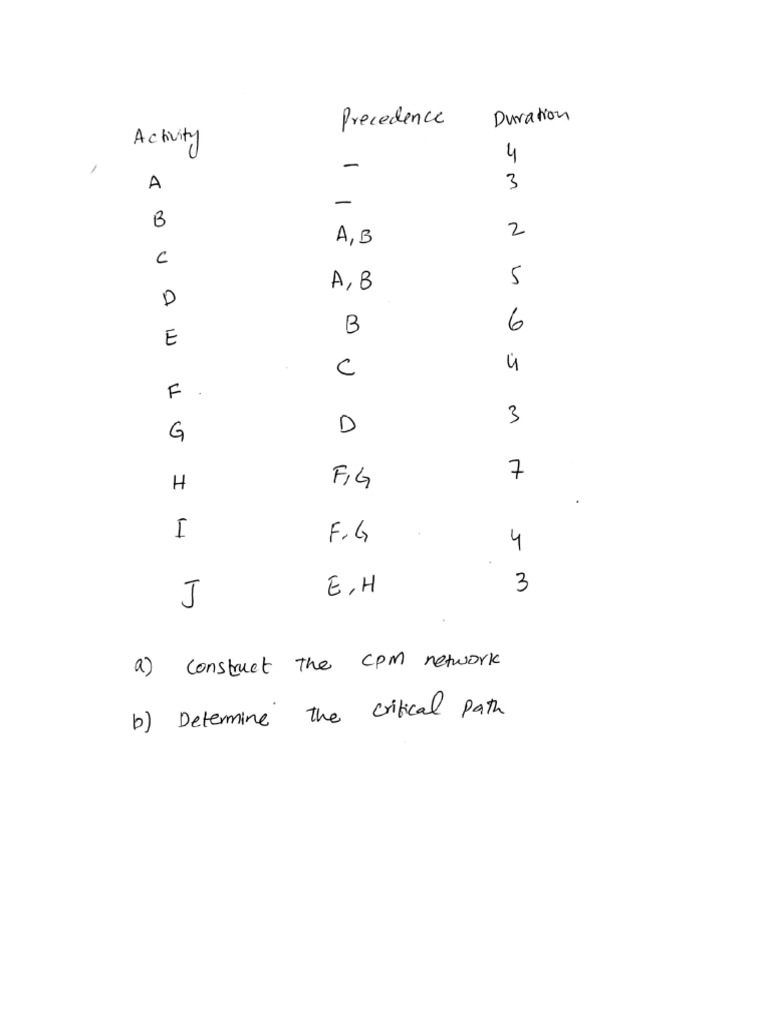 Activity Precedence Duration
A – 4
B – 3
C A, B 2
D A, B 5
E B 6
F C 4
G D 3
H F, G 7
I F, G 4
J E, H 3
a) Construct The CPM network
b) Determine The critical path